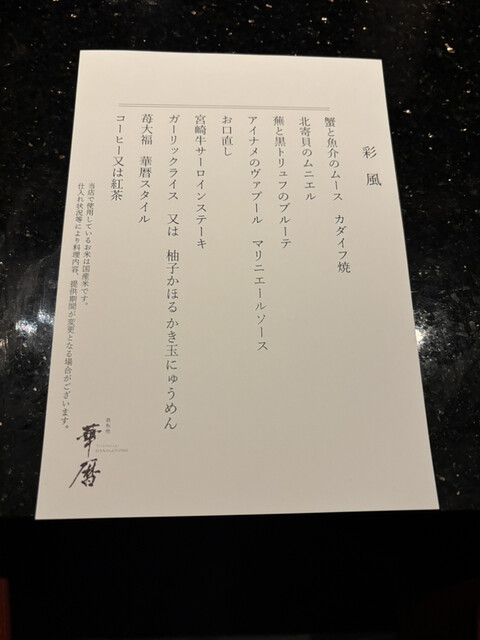 彩風
蟹と魚介のムース　カダイフ焼
北寄貝のムニエル
蕪と黒トリュフのブルーテ
アイナメのヴァプール　マリニエールソース
お口直し
宮崎牛サーロインステーキ
ガーリックライス　又は　柚子かほる かき玉にゅうめん
苺大福　華暦スタイル
コーヒー又は紅茶
当店で使用しているお米は国産米です。
仕入れ状況等により料理内容、提供期間が変更となる場合がございます。
鉄板焼
華暦